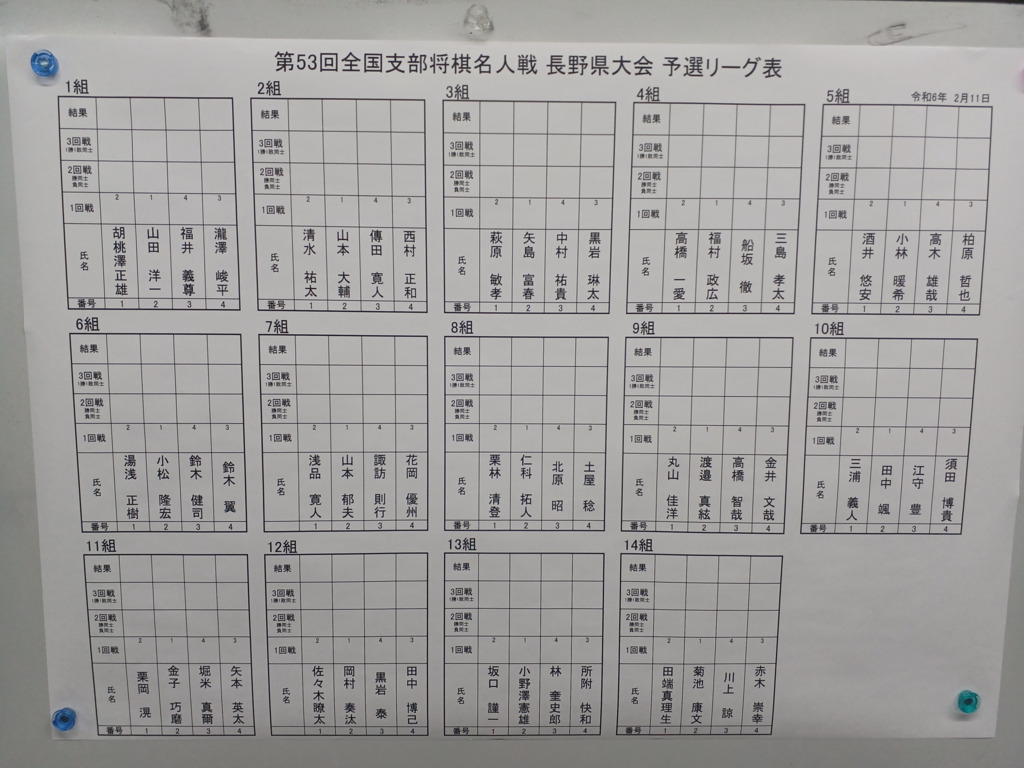 第53回全国支部将棋名人戦 長野県大会 予選リーグ表
令和6年 2月11日
1組
結果
3回戦
1勝1敗同士
2回戦
勝同士
負同士
1回戦 2 1 4 3
氏名 胡桃澤正雄 山田 洋一 福井 義尊 瀧澤 峻平
番号 1 2 3 4
2組
結果
3回戦
1勝1敗同士
2回戦
勝同士
負同士
1回戦 2 1 4 3
氏名 清水 祐太 山本 大輔 傳田 寛人 西村 正和
番号 1 2 3 4
3組
結果
3回戦
1勝1敗同士
2回戦
勝同士
負同士
1回戦 2 1 4 3
氏名 萩原 敏孝 矢島 富春 中村 祐貴 黒岩 琳太
番号 1 2 3 4
4組
結果
3回戦
1勝1敗同士
2回戦
勝同士
負同士
1回戦 2 1 4 3
氏名 高橋 一愛 福村 政広 船坂 徹 三島 孝太
番号 1 2 3 4
5組
結果
3回戦
1勝1敗同士
2回戦
勝同士
負同士
1回戦 2 1 4 3
氏名 酒井 悠安 小林 暖希 高木 雄哉 柏原 哲也
番号 1 2 3 4
6組
結果
3回戦
1勝1敗同士
2回戦
勝同士
負同士
1回戦 2 1 4 3
氏名 湯浅 正樹 小松 隆宏 鈴木 健司 鈴木 翼
番号 1 2 3 4
7組
結果
3回戦
1勝1敗同士
2回戦
勝同士
負同士
1回戦 2 1 4 3
氏名 浅品 寛人 山本 郁夫 諏訪 則行 花岡 優州
1 2 3 4
8組
結果
3回戦
1勝1敗同士
2回戦
勝同士
負同士
1回戦 2 1 4 3
氏名 栗林 清登 仁科 拓人 北原 昭 土屋 稔
番号 1 2 3 4
9組
結果
3回戦
1勝1敗同士
2回戦
勝同士
負同士
1回戦 2 1 4 3
氏名 丸山 佳洋 渡邉 真絃 高橋 智哉 金井 文哉
番号 1 2 3 4
10組
結果
3回戦
1勝1敗同士
2回戦
勝同士
負同士
1回戦 2 1 4 3
氏名 三浦 義人 田中 颯 江守 豊 須田 博貴
番号 1 2 3 4
11組
結果
3回戦
1勝1敗同士
2回戦
勝同士
負同士
1回戦 2 1 4 3
氏名 栗岡 滉 金子 巧磨 堀米 真爾 矢本 英太
番号 1 2 3 4
12組
結果
3回戦
1勝1敗同士
2回戦
勝同士
負同士
1回戦 2 1 4 3
氏名 佐々木暸太 岡村 奏汰 黒岩 泰 田中 博己
1 2 3 4
13組
結果
3回戦
1勝1敗同士
2回戦
勝同士
負同士
1回戦 2 1 4 3
氏名 坂口 謹一 小野澤憲雄 林 奎史郎 所附 快和
番号 1 2 3 4
14組
結果
3回戦
1勝1敗同士
2回戦
勝同士
負同士
1回戦 2 1 4 3
氏名 田端真理生 菊池 康文 川上 諒 赤木 崇幸
番号 1 2 3 4